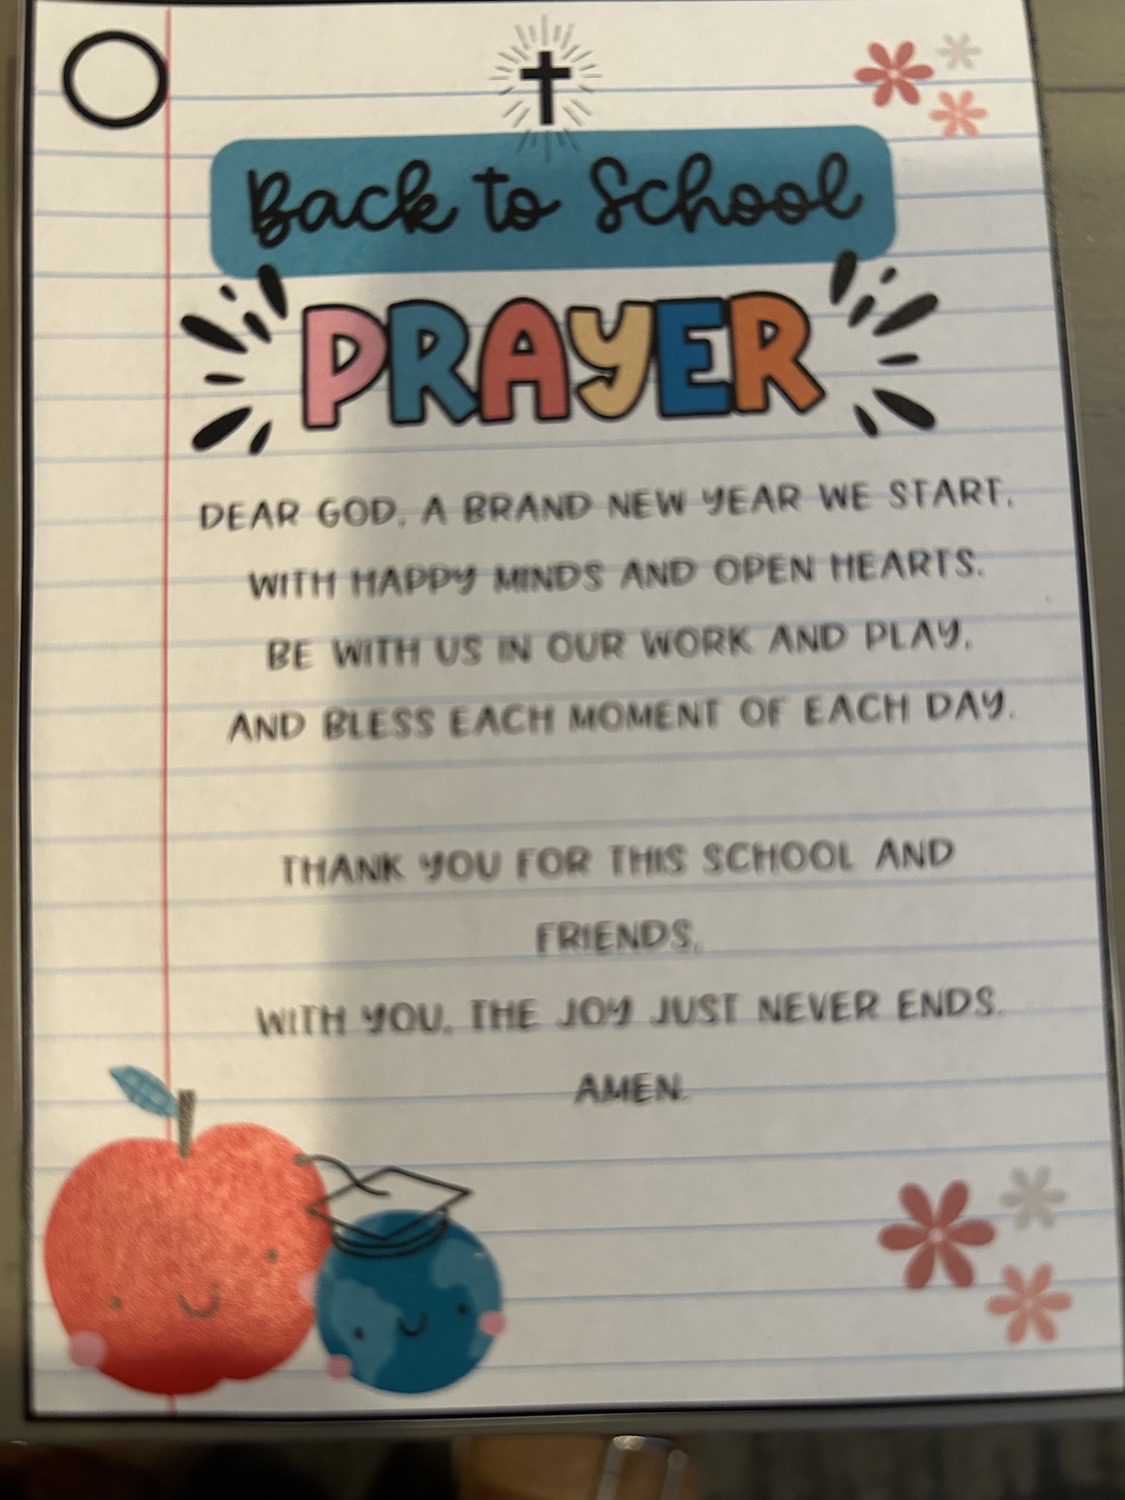 Back to School
PRAYER
DEAR GOD, A BRAND NEW YEAR WE START,
WITH HAPPY MINDS AND OPEN HEARTS.
BE WITH US IN OUR WORK AND PLAY,
AND BLESS EACH MOMENT OF EACH DAY.
THANK YOU FOR THIS SCHOOL AND
FRIENDS,
WITH YOU, THE JOY JUST NEVER ENDS.
AMEN.